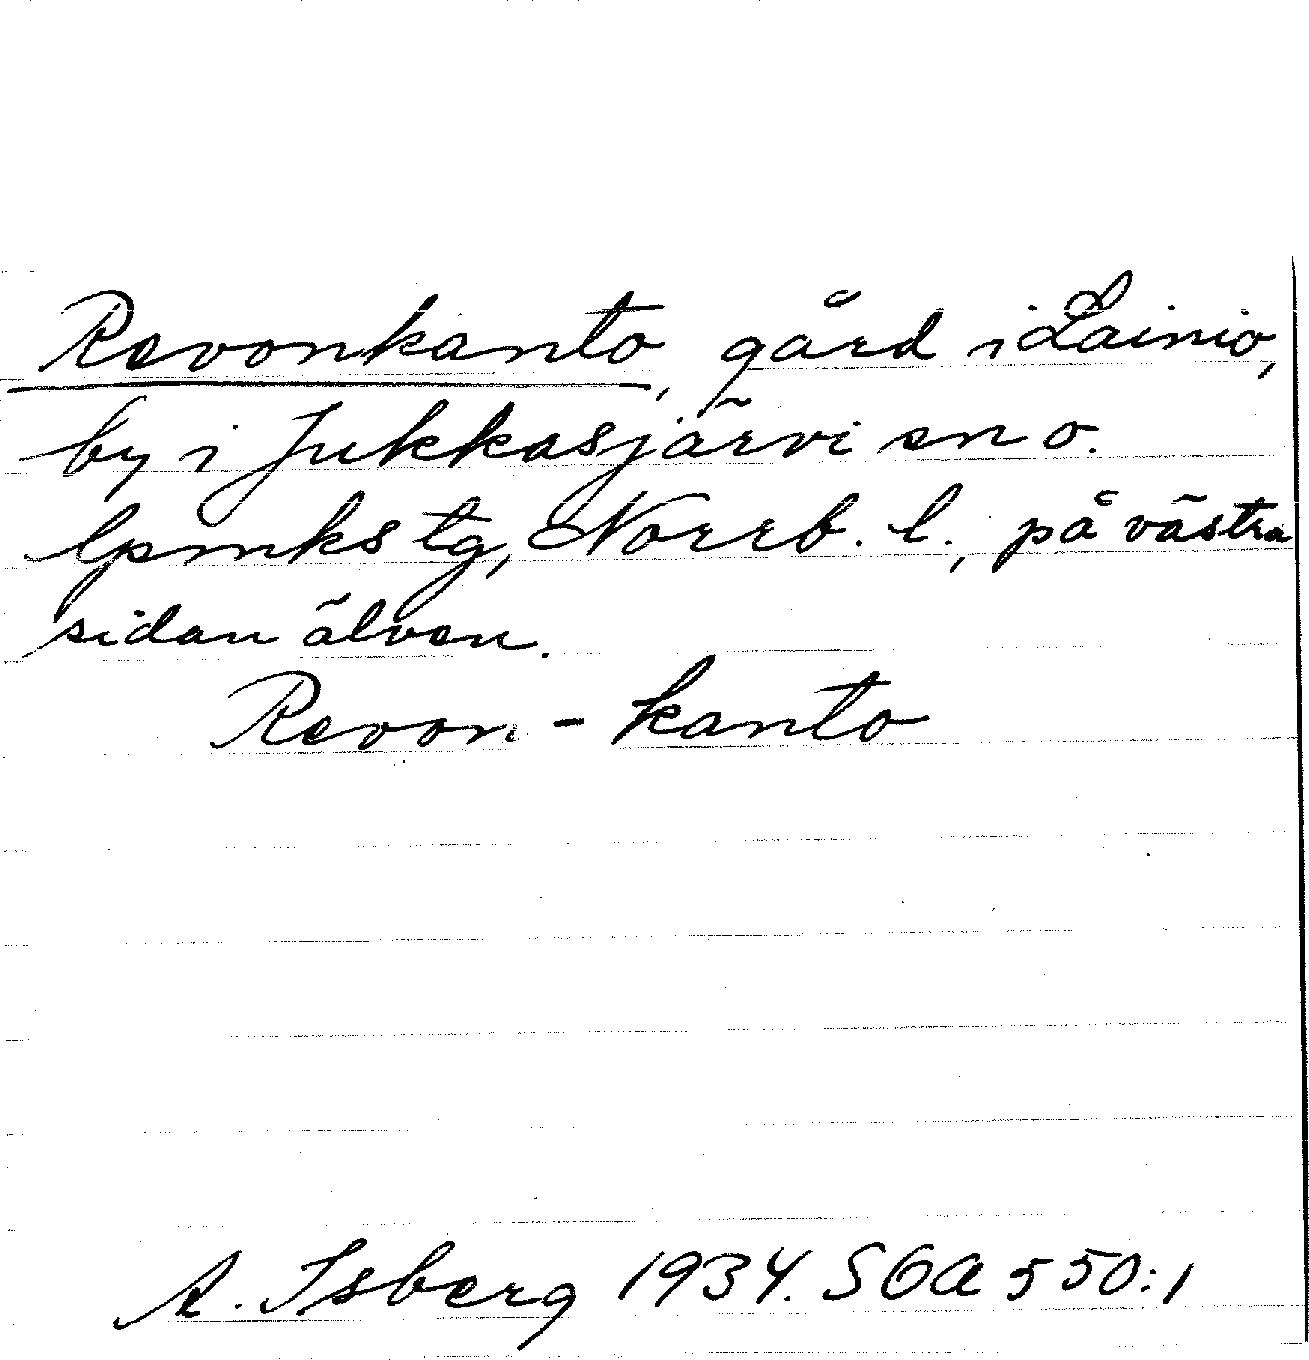 Revonkanto, gård i Lainio,
by i Jukkasjärvi sn o.
lpmks tg, Norrb. l., på västra
sidan älven.
Revon - kanto
A. Isberg 1934. SOA 550:1